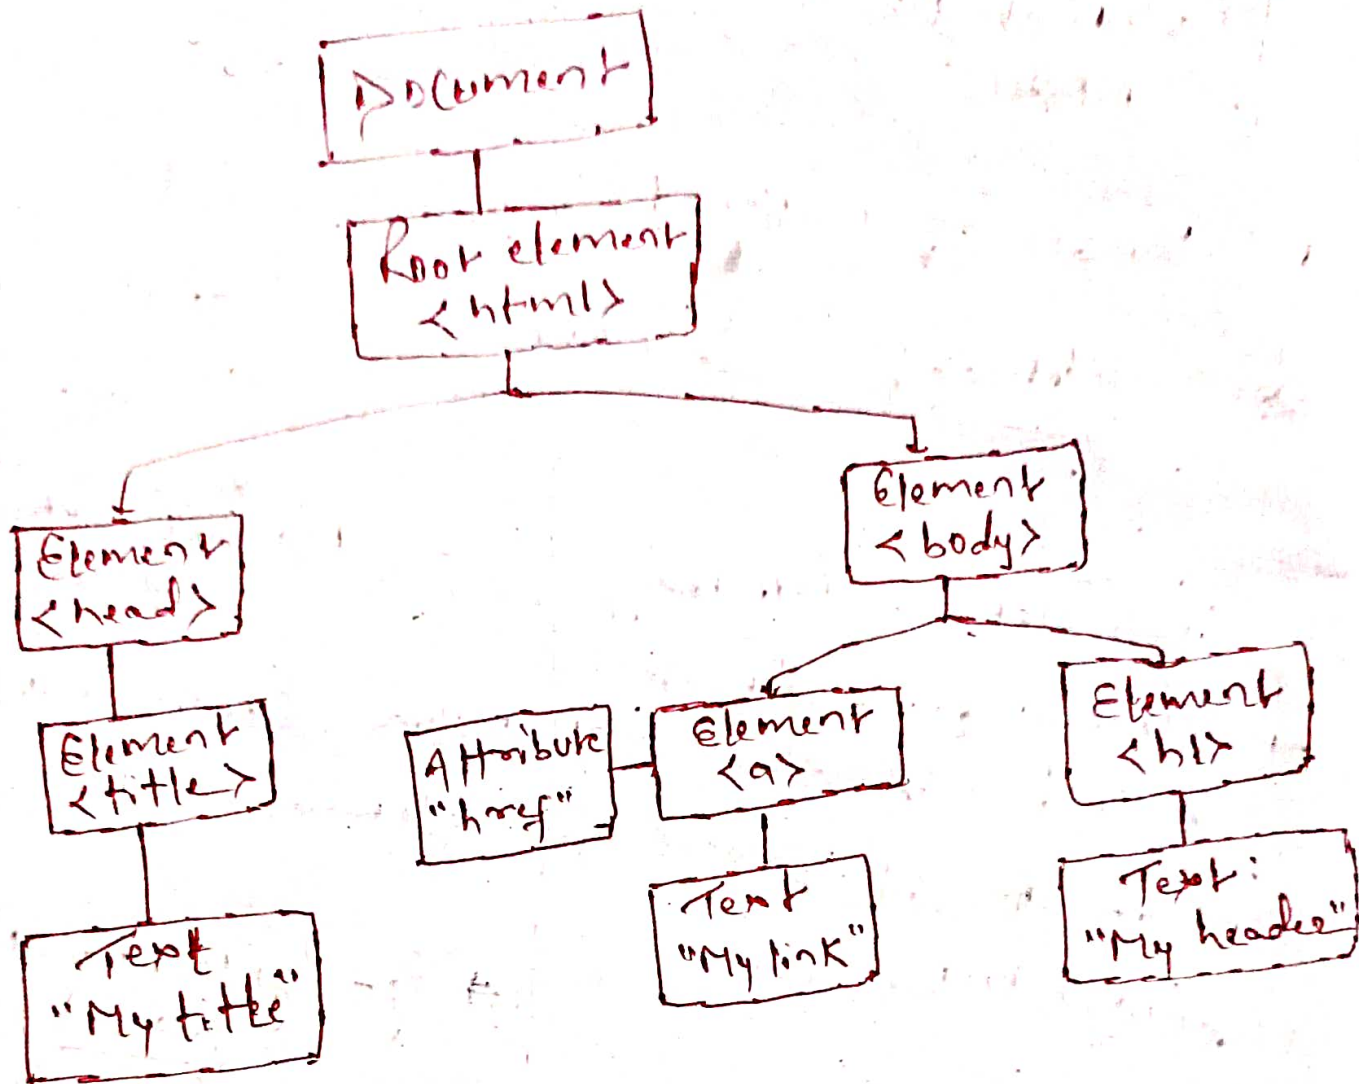 Document
Root element
<html>
Element
<head>
Element
<body>
Element
<title>
Attribute
"href"
Element
<a>
Element
<h1>
Text
"My title"
Text
"My link"
Text:
"My header"